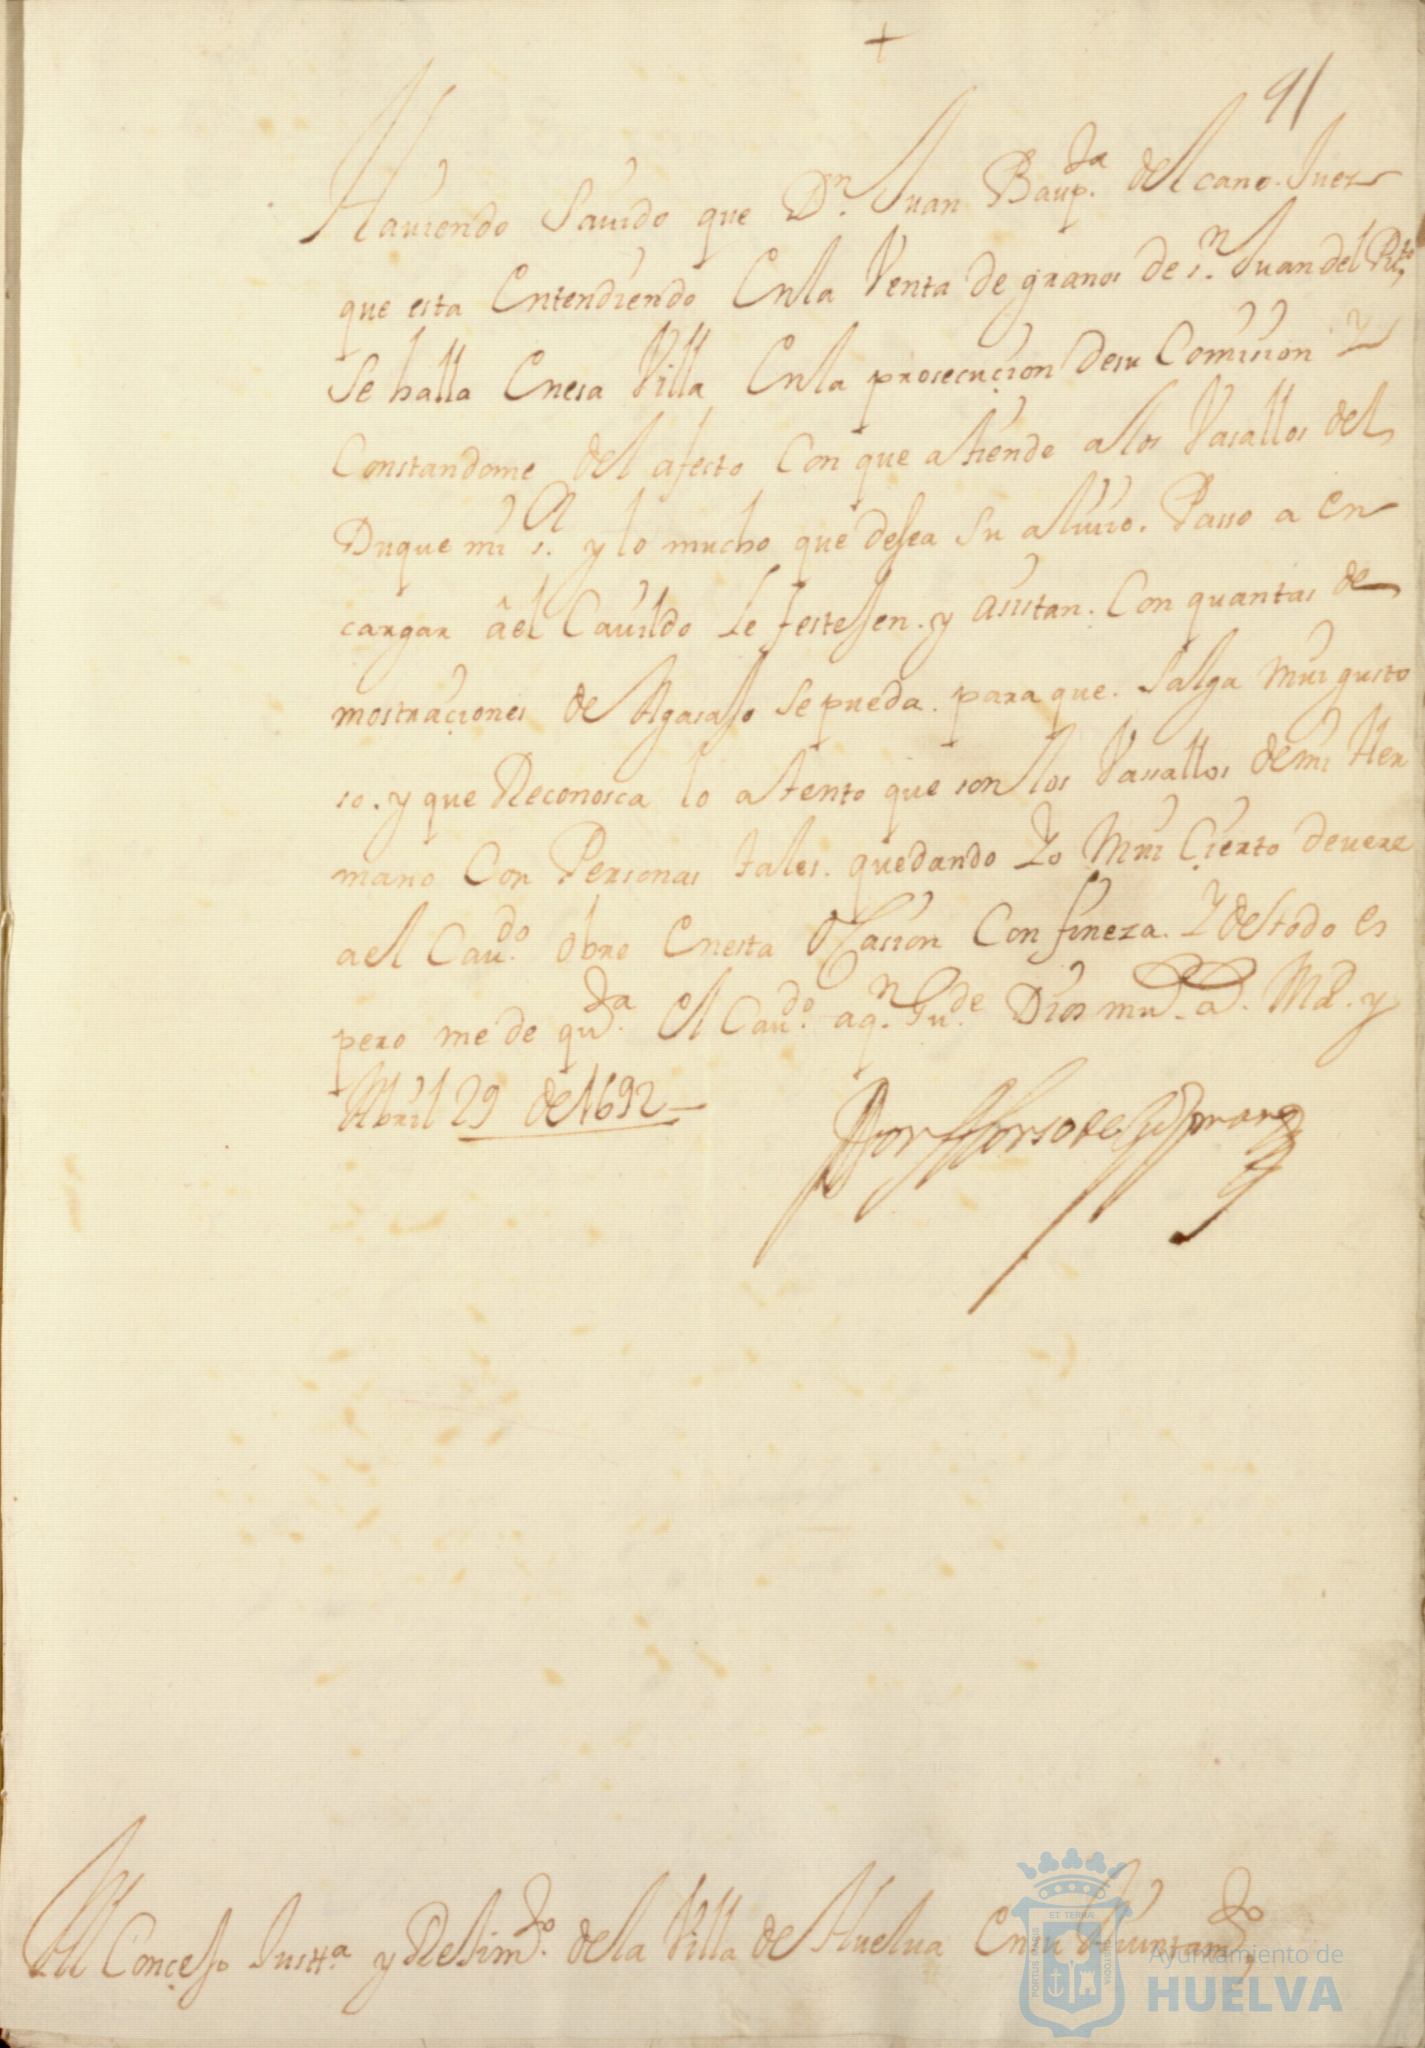 +
91
Hauiendo Sauido que Dn. Juan Baup.ta del cano. Juez
que esta Entendiendo Enla Venta de granos de s.n Juan del
Se halla Enesa Villa Enla prosecuçion desu Comision y
Constandome del afecto Con que atiende alos Vasallos del
Duque mi s.r y lo mucho que desea su aliuio. Passo a en
cargar âel Cauildo le festejen. y asistan. Con quantas de
mostraçiones de Agasajo se pueda. para que. Salga mui gusto
so. y que Reconosca lo atento que son los Vassallos demi Her
mano Con Personas tales. quedando Yo Mui Çierto deuere
ael Cau.do obre Enesta Ocasion Con fineza. Y deltodo es
pero me de qu.ta el Cau.do aq.n Gu.de Dios mu.s a.s Md. y
Abril 29 de 1692
Al Conçejo Justt.a y Rejim.to dela Villa de Huelua Ensu Aiuntam.to
ET TERRÆ
PORTUS MARIS
CUSTODIA
Ayuntamiento de
HUELVA